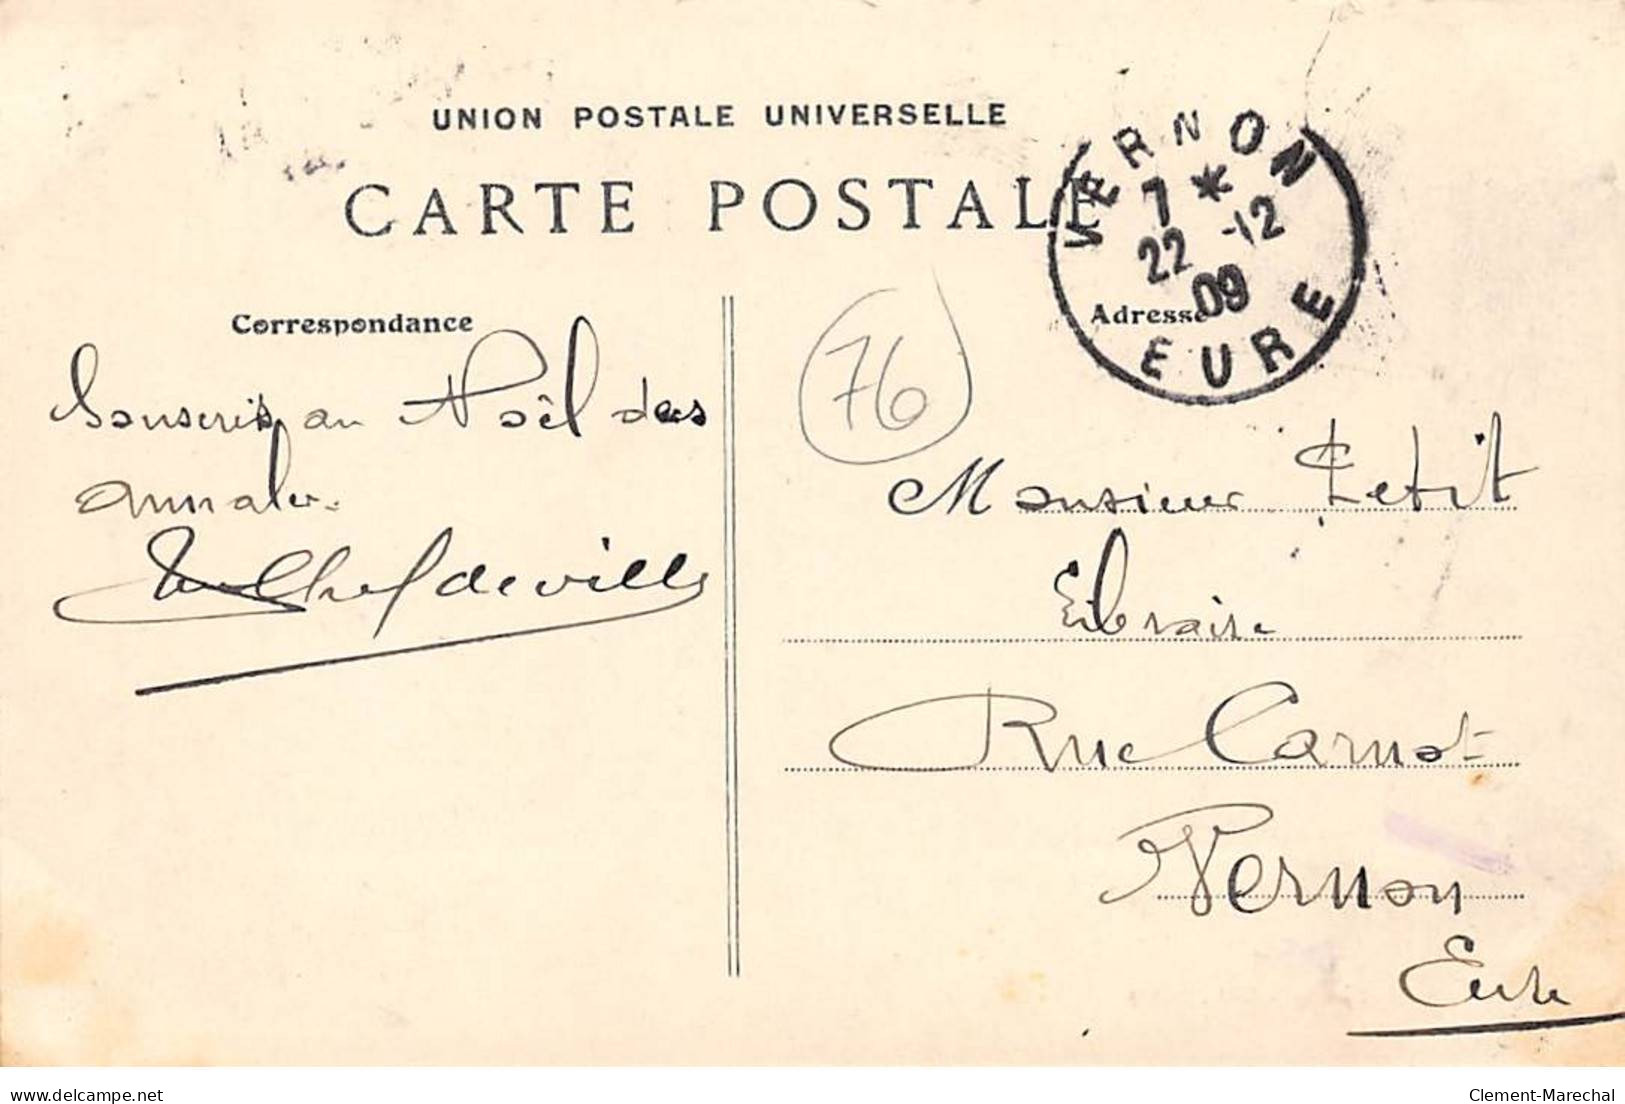 UNION POSTALE UNIVERSELLE
CARTE POSTALE
VERNON
7 *
22 -12
09
EURE
Correspondance
Adresse
76
Souscris au Noël des
annales.
Monsieur Petit
Libraire
Rue Carnot
Vernon
Eure
delcampe.net
Clement-Marechal